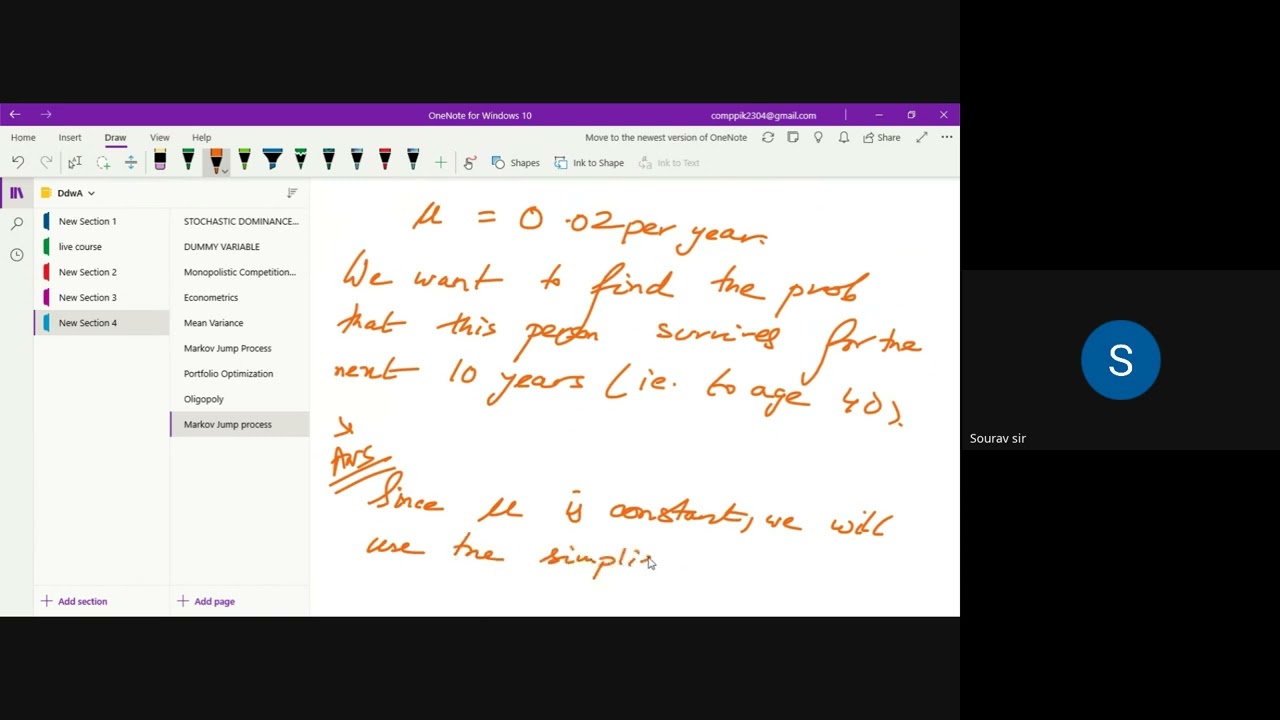 OneNote for Windows 10
comppik2304@gmail.com
Home Insert Draw View Help
Move to the newest version of OneNote
Share
Shapes
Ink to Shape
Ink to Text
DdwA
New Section 1
live course
New Section 2
New Section 3
New Section 4
STOCHASTIC DOMINANCE...
DUMMY VARIABLE
Monopolistic Competition...
Econometrics
Mean Variance
Markov Jump Process
Portfolio Optimization
Oligopoly
Markov Jump process
Add section
Add page
μ = 0.02 per year.
We want to find the prob
that this person survives for the
next 10 years (ie. to age 40).
Ans
Since μ is constant, we will
use the simpli
S
Sourav sir